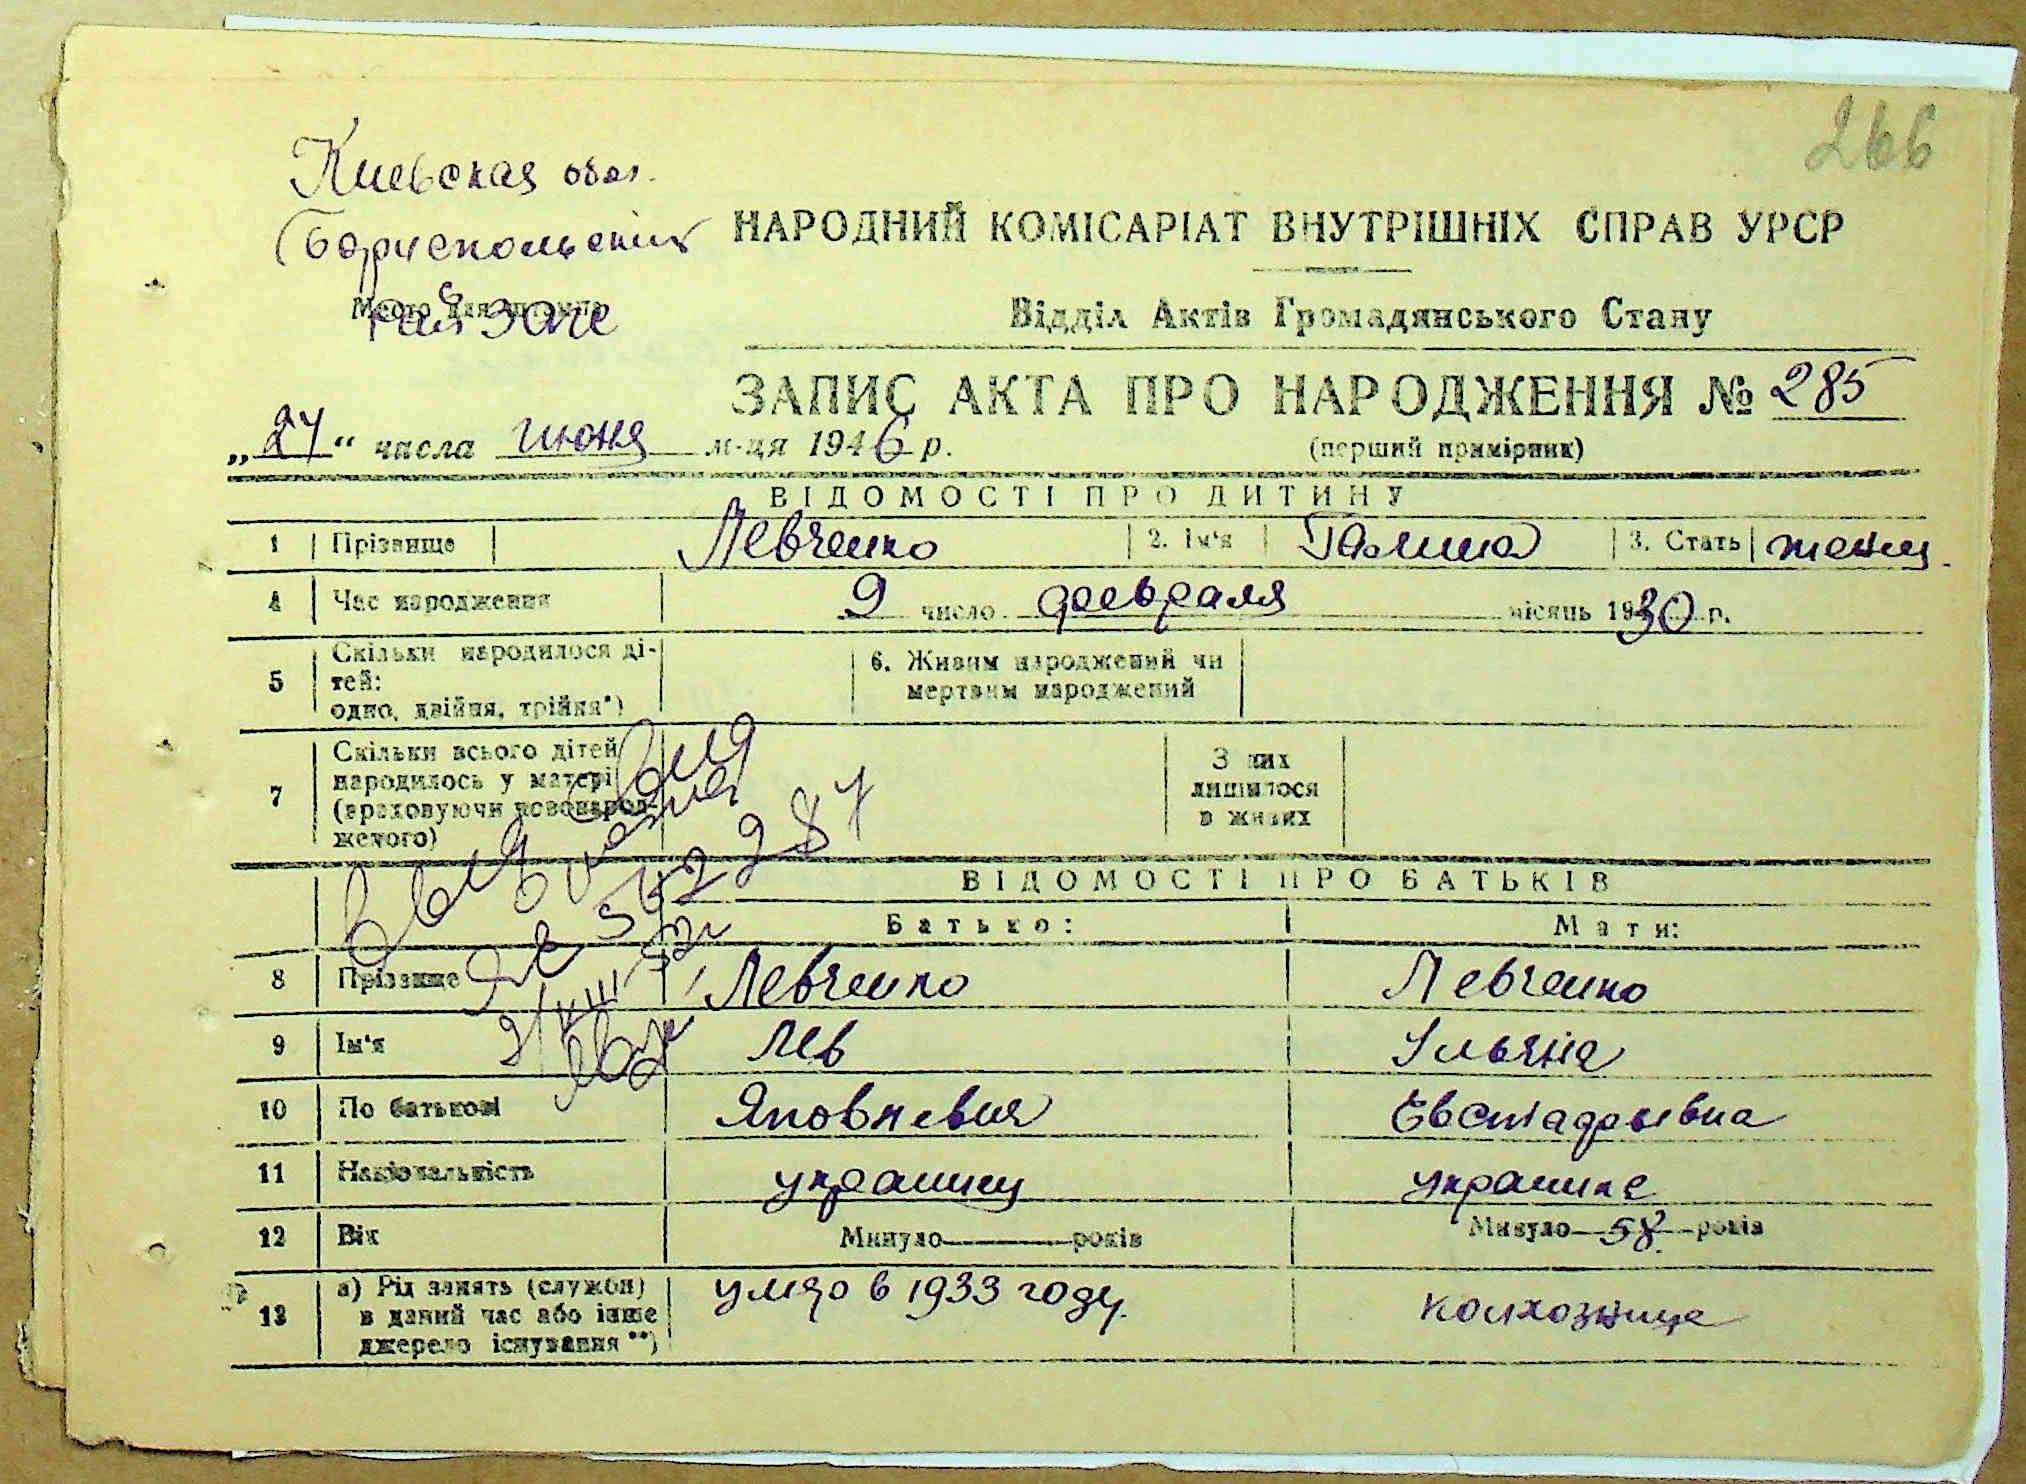 266
Киевская обл.
Бориспольский
райЗАГС
Место для штампа
НАРОДНИЙ КОМІСАРІАТ ВНУТРІШНІХ СПРАВ УРСР
Відділ Актів Громадянського Стану
ЗАПИС АКТА ПРО НАРОДЖЕННЯ № 285
„27“ числа июня м-ця 1946 р. (перший примірник)
ВІДОМОСТІ ПРО ДИТИНУ
1 Прізвище Левченко 2. Ім'я Галина 3. Стать женщ.
4 Час народження 9 число февраля місяць 1930 р.
5 Скільки народилося ді-
тей:
одно, двійня, трійня*)
6. Живим народжений чи
мертвим народжений
7 Скільки всього дітей
народилось у матері
(враховуючи новонарод-
жетого)
З них
лишилося
в живих
ВІДОМОСТІ ПРО БАТЬКІВ
Батько: Мати:
8 Прізвище Левченко Левченко
9 Ім'я Лев Ульяна
10 По батькові Яковлевич
11 Національність украинец украинка
12 Вік Минуло років Минуло 58 років
13 а) Рід занять (служби)
в даний час або інше
джерело існування **)
умер в 1933 году. колхозница